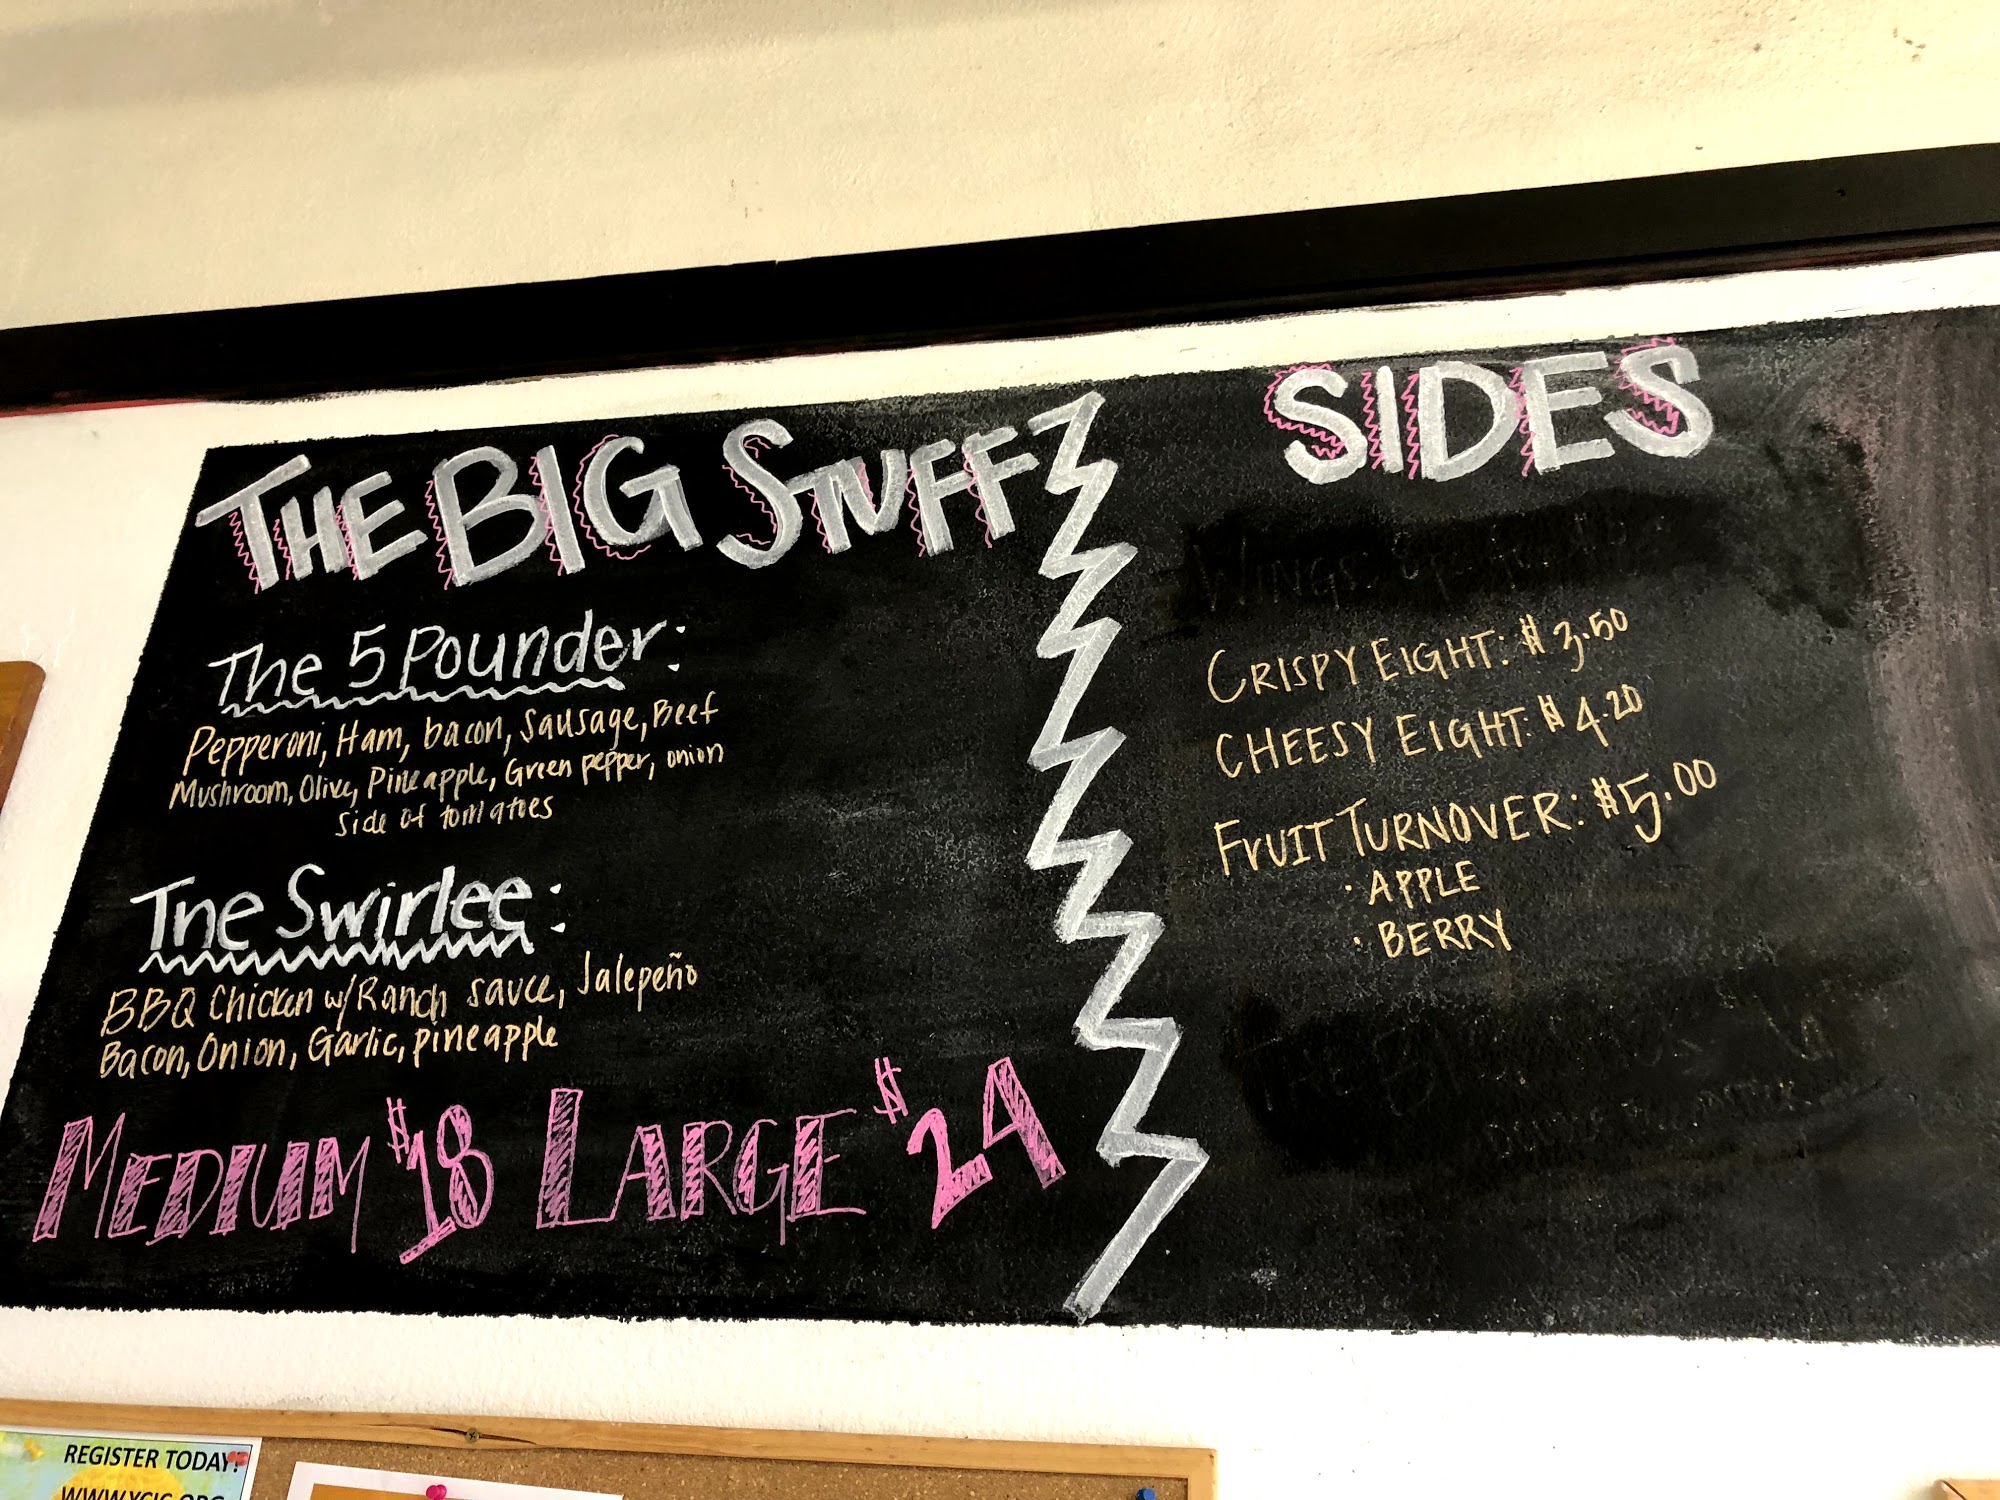 THE BIG STUFF
The 5 Pounder:
Pepperoni, Ham, bacon, Sausage, Beef
Mushroom, Olive, Pineapple, Green pepper, onion
Side of tomatoes
The Swirlee:
BBQ Chicken w/Ranch sauce, Jalepeño
Bacon, Onion, Garlic, pineapple
MEDIUM $18 LARGE $24
SIDES
WINGS
CRISPY EIGHT: $3.50
CHEESY EIGHT: $4.20
FRUIT TURNOVER: $5.00
· APPLE
· BERRY
REGISTER TODAY!